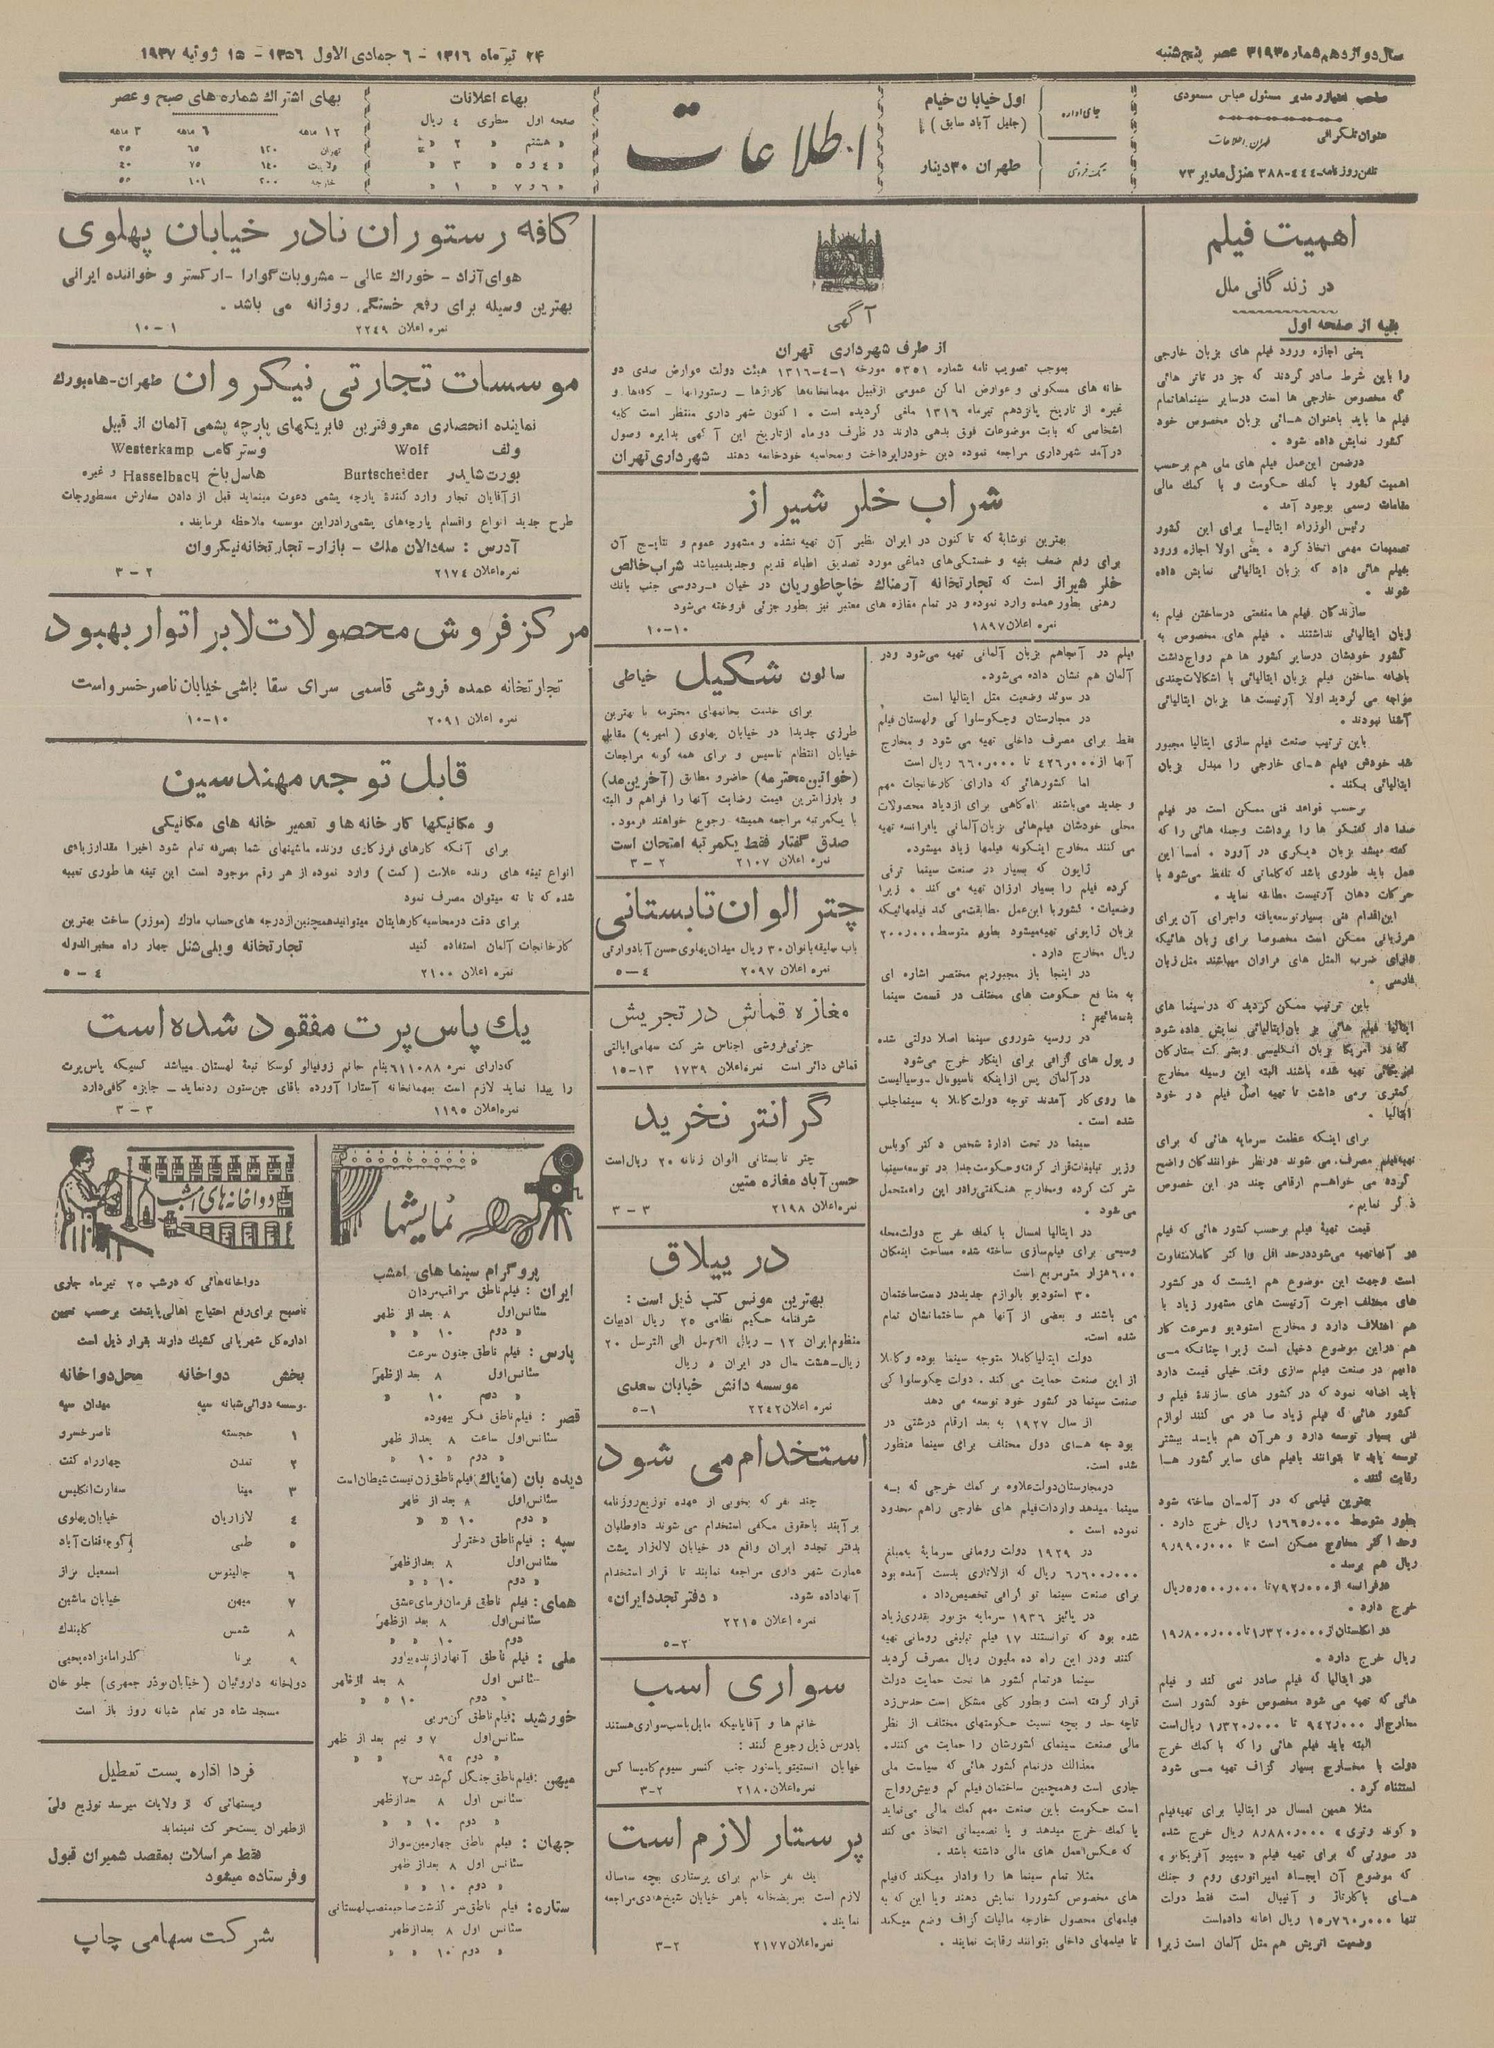 سال دوازدهم شماره ۳۱۹۳ عصر پنج‌شنبه
۲۴ تیر ماه ۱۳۱۶ - ۶ جمادی الاول ۱۳۵۶ - ۱۵ ژوئیه ۱۹۳۷
صاحب امتیاز و مدیر مسئول عباس مسعودی
عنوان تلگرافی طهران اطلاعات
تلفن روزنامه - ۴۴۴-۳۸۸ منزل مدیر ۷۳
جای اداره
اول خیابان خیام
(جلیل آباد سابق)
تک فروشی
طهران ۳۰ دینار
اطلاعات
بهاء اعلانات
صفحه اول سطری ۴ ریال
« هشتم « ۲ «
« ۴ و ۵ « ۳ «
« ۶ و ۷ « ۱ «
بهای اشتراک شماره های صبح و عصر
۱۲ ماهه ۶ ماهه ۳ ماهه
تهران ۱۲۰ ۶۵ ۳۵
ولایت ۱۴۰ ۷۵ ۴۰
خارجه ۲۰۰ ۱۰۱ ۵۵
اهمیت فیلم
در زندگانی ملل
بقیه از صفحه اول
یعنی اجازه ورود فیلم های بزبان خارجی
را باین شرط صادر کردند که جز در تاتر هائی
که مخصوص خارجی ها است درسایر سینماها تمام
فیلم ها باید باعنوان هائی بزبان مخصوص خود
کشور نمایش داده شود .
درضمن این‌عمل فیلم های ملی هم برحسب
اهمیت کشور با کمک حکومت و با کمک مالی
مقامات رسمی بوجود آمد .
رئیس الوزراء ایتالیا برای این کشور
تصمیمات مهمی اتخاذ کرد . یعنی اولا اجازه ورود
بفیلم هائی داد که بزبان ایتالیائی نمایش داده
شوند .
سازندگان فیلم ها منفعتی درساختن فیلم به
زبان ایتالیائی نداشتند . فیلم های مخصوص به
کشور خودشان درسایر کشور ها هم رواج داشت
باضافه ساختن فیلم بزبان ایتالیائی با اشکالات چندی
مواجه می گردید اولا آرتیست ها بزبان ایتالیائی
آشنا نبودند .
باین ترتیب صنعت فیلم سازی ایتالیا مجبور
شد خودش فیلم های خارجی را مبدل بزبان
ایتالیائی بکند .
برحسب قواعد فنی ممکن است در فیلم
صدا دار گفتگو ها را برداشت وجمله هائی را که
گفته میشد بزبان دیگری در آورد . اما این
عمل باید طوری باشد که کلماتی که تلفظ می‌شود با
حرکات دهان آرتیست مطابقه نماید .
این‌اقدام فنی بسیار توسعه‌یافته واجرای آن برای
هرزبانی ممکن است مخصوصا برای زبان هائیکه
دارای ضرب المثل های فراوان میباشند مثل زبان
فارسی .
باین ترتیب ممکن گردید که درسینما های
ایتالیا فیلم هائی بزبان‌ایتالیائی نمایش داده شود
که در آمریکا بزبان انگلیسی وبشرکت ستارگان
امریکائی تهیه شده باشند البته این وسیله مخارج
کمتری برمی داشت تا تهیه اصل فیلم در خود
ایتالیا .
برای اینکه عظمت سرمایه هائی که برای
تهیه‌فیلم مصرف می شوند درنظر خوانندگان واضح
گردد می خواهیم ارقامی چند در این خصوص
ذکر نمایم.
قیمت تهیهٔ فیلم برحسب کشور هائی که فیلم
در آنهاتهیه می‌شود درحد اقل و اکثر کاملا متفاوت
است وجهت این موضوع هم اینست که در کشور
های مختلف اجرت آرتیست های مشهور زیاد با
هم اختلاف دارد و مخارج استودیو وسرعت کار
هم دراین موضوع دخیل است زیرا چنانکه می
دانیم در صنعت فیلم سازی وقت خیلی قیمت دارد
باید اضافه نمود که در کشور های سازندهٔ فیلم و
کشور هائی که فیلم زیاد صادر می کنند لوازم
فنی بسیار توسعه دارد و هر آن هم باید بیشتر
توسعه یابد تا بتوانند بافیلم های سایر کشور ها
رقابت کنند .
بهترین فیلمی که در آلمان ساخته شود
بطور متوسط ۱٫۶۶۵٫۰۰۰ ریال خرج دارد .
وحد اکثر مخارج ممکن است تا ۹٫۹۹۰٫۰۰۰
ریال هم برسد .
درفرانسه از ۷۹۲٫۰۰۰ تا ۵٫۵۰۰٫۰۰۰ ریال
خرج دارد .
در انگلستان از ۱٫۳۲۰٫۰۰۰ تا ۱۹٫۸۰۰٫۰۰۰
ریال خرج دارد .
در ایتالیها که فیلم صادر نمی کند و فیلم
هائی که تهیه می شود مخصوص خود کشور است
مخارج از ۹۴۲٫۰۰۰ تا ۱٫۳۲۰٫۰۰۰ ریال است
البته باید فیلم هائی را که با کمک خرج
دولت با مخارج بسیار گزاف تهیه می شود
استثناء کرد .
مثلا همین امسال در ایتالیا برای تهیه‌فیلم
«کوند وتری» ۸٫۸۸۰٫۰۰۰ ریال خرج شده
در صورتی که برای تهیه فیلم « سیپیو آفریکانو »
که موضوع آن ایجاد امپراتوری روم و جنگ
های با کارتاژ و آنیبال است فقط دولت
تنها ۱۵٫۷۶۰٫۰۰۰ ریال اعانه داده‌است
وضعیت اتریش هم مثل آلمان است زیرا
آگهی
از طرف شهرداری تهران
بموجب تصویب نامه شماره ۵۳۵۱ مورخه ۱-۴-۱۳۱۶ هیئت دولت عوارض صدی دو
خانه های مسکونی و عوارض اماکن عمومی ازقبیل مهمانخانه‌ها گاراژها - رستورانها - کافه‌ها و
غیره از تاریخ پانزدهم تیرماه ۱۳۱۶ ملغی گردیده است . اکنون شهرداری منتظر است کلیه
اشخاصی که بابت موضوعات فوق بدهی دارند در ظرف دو ماه ازتاریخ این آگهی بدایره وصول
درآمد شهرداری مراجعه نموده دین خودراپرداخت وبمحاسبه خودخاتمه دهند شهرداری‌تهران
شراب خلر شیراز
بهترین نوشابهٔ که تا کنون در ایران نظیر آن تهیه نشده و مشهور عموم و نتایج آن
برای رفع ضعف بنیه و خستگی‌های دماغی مورد تصدیق اطباء قدیم وجدیدمیباشد شراب‌خالص
خلر شیراز است که تجارتخانه آرمناک خاچاطوریان در خیابان فردوسی جنب بانک
رهنی بطور عمده وارد نموده و در تمام مغازه های معتبر نیز بطور جزئی فروخته می‌شود
نمره اعلان ۱۸۹۷ ۱۰-۱۰
فیلم در آنجاهم بزبان آلمانی تهیه می‌شود ودر
آلمان هم نشان داده می‌شود.
در سوئد وضعیت مثل ایتالیا است
در مجارستان وچکوسلواکی و لهستان فیلم
فقط برای مصرف داخلی تهیه می شود و مخارج
آنها از ۴۲۶٫۰۰۰ تا ۶۶۰٫۰۰۰ ریال است
اما کشورهائی که دارای کارخانجات مهم
و جدید می‌باشند گاهی برای ازدیاد محصولات
محلی خودشان فیلم‌هائی بزبان آلمانی یا فرانسه تهیه
می کنند مخارج اینگونه فیلمها زیاد میشود.
ژاپون که بسیار در صنعت سینما ترقی
کرده فیلم را بسیار ارزان تهیه می کند . زیرا
وضعیات کشور با این‌عمل مطابقت می کند فیلمهائیکه
بزبان ژاپونی تهیه‌میشود بطور متوسط ۲۰۰٫۰۰۰
ریال مخارج دارد .
در اینجا باز مجبوریم مختصر اشاره ای
به منافع حکومت های مختلف در قسمت سینما
بنمائیم :
در روسیه شوروی سینما اصلا دولتی شده
و پول های گزافی برای اینکار خرج می‌شود
درآلمان پس ازاینکه ناسیونال سوسیالیست
ها روی کار آمدند توجه دولت کاملا به سینماجلب
شده است .
سینما در تحت ادارهٔ شخص دکتر گوبلس
وزیر تبلیغات قرار گرفته و حکومت جدا در توسعه سینما
شرکت کرده ومخارج هنگفتی رادر این راه متحمل
می‌شود .
در ایتالیا امسال با کمک خرج دولت محله
وسیعی برای فیلم‌سازی ساخته شده مساحت این‌مکان
۶۰۰ هزار متر مربع است
۳۰ استودیو بالوازم جدیددر دست ساختمان
می باشند و بعضی از آنها هم ساختمانشان تمام
شده است.
دولت ایتالیا کاملا متوجه سینما بوده و کاملا
از این صنعت حمایت می کند . دولت چکوسلواکی
صنعت سینما در کشور خود توسعه می دهد
از سال ۱۹۲۷ به بعد ارقام درشتی در
بودجه های دول مختلف برای سینما منظور
شده است.
درمجارستان‌دولت علاوه بر کمک خرجی که به
سینما میدهد واردات فیلم های خارجی راهم محدود
نموده است .
در ۱۹۲۹ دولت رومانی سرمایهٔ به‌مبلغ
۶٫۶۰۰٫۰۰۰ ریال که ازلاتاری بدست آمده بود
برای صنعت سینما تو گرافی تخصیص‌داد .
در پائیز ۱۹۳۶ سرمایه مزبور بقدری‌زیاد
شده بود که توانستند ۱۷ فیلم تبلیغی رومانی تهیه
کنند ودر این راه ده ملیون ریال مصرف گردید
سینما درتمام کشور ها تحت حمایت دولت
قرار گرفته است وبطور کلی مشکل است حدس‌زد
تاچه حد و بچه نسبت حکومتهای مختلف از نظر
مالی صنعت سینمای کشورشان را حمایت می کنند.
معذالک درتمام کشور هائی که سیاست ملی
جاری است وهمچنین ساختمان فیلم کم وبیش رواج
است حکومت باین صنعت مهم کمک مالی می‌نماید
یا کمک خرج میدهد و یا تصمیماتی اتخاذ می کند
که عکس‌العمل های مالی داشته باشد .
مثلا تمام سینما ها را وادار میکند که‌فیلم
های مخصوص کشوررا نمایش دهند ویا این که به
فیلمهای محصول خارجه مالیات گزاف وضع میکند
تا فیلمهای داخلی بتوانند رقابت نمایند .
سالون شکیل خیاطی
برای خدمت بخانمهای محترمه با بهترین
طرزی جدیدا در خیابان پهلوی (امیریه) مقابل
خیابان انتظام تاسیس و برای همه گونه مراجعات
(خواتین‌محترمه) حاضر و مطابق (آخرین‌مد)
و بارزانترین قیمت رضایت آنها را فراهم و البته
با یکمرتبه مراجعه همیشه رجوع خواهند فرمود.
صدق گفتار فقط یکمرتبه امتحان است
نمره اعلان ۲۱۰۷ ۲-۳
چتر الوان تابستانی
باب سلیقه بانوان ۳۰ ریال میدان پهلوی حسن آباد وارثی
نمره اعلان ۲۰۹۷ ۴-۵
مغازه قماش در تجریش
جزئی فروشی اجناس شرکت سهامی ایالتی
قماش دائر است نمره‌اعلان ۱۷۳۹ ۱۳-۱۵
گرانتر نخرید
چتر تابستانی الوان زنانه ۲۰ ریال است
حسن‌آباد مغازه متین
نمره اعلان ۲۱۹۸ ۳-۳
در ییلاق
بهترین مونس کتب ذیل است :
شرفنامه حکیم نظامی ۲۵ ریال ادبیات
منظوم ایران ۱۲ - ریال التوسل الی الترسل ۲۰
ریال-هشت سال در ایران ۵ ریال
موسسه دانش خیابان سعدی
نمره اعلان ۲۲۴۲ ۱-۵
استخدام می شود
چند نفر که بخوبی از عهده توزیع روزنامه
برآیند باحقوق مکفی استخدام می شوند داوطلبان
بدفتر تجدد ایران واقع در خیابان لاله‌زار پشت
عمارت شهرداری مراجعه نمایند تا قرار استخدام
آنهاداده شود. « دفتر تجدد ایران»
نمره اعلان ۲۲۱۵
۲-۵
سواری اسب
خانم ها و آقایانیکه مایل باسب‌سواری هستند
بادرس ذیل رجوع کنند :
خیابان انستیتو پاستور جنب کنسرسیوم کامپساکس
نمره اعلان ۲۱۸۰ ۲-۳
پرستار لازم است
یک نفر خانم برای پرستاری بچه سه‌ساله
لازم است بمریضخانه باهر خیابان شیخ‌هادی مراجعه
نمایند .
نمره‌اعلان ۲۱۷۷ ۲-۳
کافه رستوران نادر خیابان پهلوی
هوای آزاد - خوراک عالی - مشروبات گوارا - ارکستر و خواننده ایرانی
بهترین وسیله برای رفع خستگی روزانه می باشد .
نمره اعلان ۲۲۴۹ ۱-۱۰
موسسات تجارتی نیکروان طهران-هامبورک
نماینده انحصاری معروفترین فابریکهای پارچه پشمی آلمان از قبیل
ولف Wolf وسترکامپ Westerkamp
بورت‌شایدر Burtscheider هاسل‌باخ Hasselbach و غیره
ازآقایان تجار وارد کنندهٔ پارچه پشمی دعوت مینماید قبل از دادن سفارش مسطورجات
طرح جدید انواع واقسام پارچه‌های پشمی رادراین موسسه ملاحظه فرمایند .
آدرس : سه‌دالان ملک - بازار- تجارتخانه نیکروان
نمره‌اعلان ۲۱۷۴ ۲-۳
مرکز فروش محصولات لابراتوار بهبود
تجارتخانه عمده فروشی قاسمی سرای سقا باشی خیابان ناصر خسرو است
نمره اعلان ۲۰۹۱ ۱۰-۱۰
قابل توجه مهندسین
و مکانیکها کارخانه ها و تعمیر خانه های مکانیکی
برای آنکه کارهای فرزکاری ورنده ماشینهای شما بصرفه تمام شود اخیرا مقدارزیادی
انواع تیغه های رنده علامت (گمت) وارد نموده از هر رقم موجود است این تیغه ها طوری تعبیه
شده که تا ته میتوان مصرف نمود
برای دقت درمحاسبه کارهایتان میتوانیدهمچنین ازدرجه های حساب مارک (موزر) ساخت بهترین
کارخانجات آلمان استفاده کنید تجارتخانه ویلی شنل چهار راه مخبرالدوله
نمره اعلان ۲۱۰۰ ۴-۵
یک پاس پرت مفقود شده است
که‌دارای نمره ۶۱۱۰۸۸ بنام خانم زوفیالو کوسکا تبعهٔ لهستان میباشد کسیکه پاس‌پرت
را پیدا نماید لازم است بمهمانخانه آستارا آورده باقای جن‌ستون ردنماید - جایزه کافی‌دارد
نمره‌اعلان ۱۱۹۵ ۳-۳
نمایشها
پروگرام سینما های امشب
ایران : فیلم ناطق مراقب مردان
سئانس اول ۸ بعد از ظهر
« دوم ۱۰ « «
پارس : فیلم ناطق جنون سرعت
سئانس اول ۸ بعد ازظهر
« دوم ۱۰ «
قصر : فیلم ناطق فکر بیهوده
سئانس اول ساعت ۸ بعداز ظهر
« دوم « ۱۰ «
دیده بان (مایاک) فیلم ناطق زن نیست شیطان است
سئانس اول ۸ بعد از ظهر
« دوم ۱۰ « «
سپه : فیلم ناطق دختر لر
سئانس اول ۸ بعدازظهر
« دوم ۱۰ « «
همای : فیلم ناطق فرمان‌فرمای عشق
سئانس اول ۸ بعد ازظهر
دوم ۱۰ « «
ملی : فیلم ناطق آنهارازنده بیاور
سئانس اول ۸ بعد ازظهر
« دوم ۱۰ « «
خورشید : فیلم ناطق کن مربی
سئانس اول ۷ و نیم بعد از ظهر
« دوم ۹۵ « «
میهن : فیلم ناطق جنگل گم‌شد س۲
سئانس اول ۸ بعدازظهر
« دوم ۱۰ « «
جهان : فیلم ناطق چهارمین سوار
سئانس اول ۸ بعد از ظهر
« دوم ۱۰ « «
ستاره : فیلم ناطق سرگذشت صاحبمنصب لهستانی
سئانس اول ۸ بعد ازظهر
« دوم ۱۰ « «
دواخانه‌های امشب
دواخانه‌هائی که درشب ۲۵ تیرماه جاری
تاصبح برای رفع احتیاج اهالی پایتخت برحسب تعیین
اداره کل شهربانی کشیک دارند بقرار ذیل است
بخش دواخانه محل دواخانه
موسسه دوائی شبانه سپه میدان سپه
۱ خجسته ناصر خسرو
۲ تمدن چهارراه کنت
۳ مینا سفارت‌انگلیس
۴ لازاریان خیابان پهلوی
۵ طبی کوچه قنات آباد
۶ جالینوس اسمعیل بزاز
۷ میهن خیابان ماشین
۸ شمس گلبندک
۹ برنا گذر امامزاده یحیی
دواخانه داروئیان (خیابان بوذرجمهری) جلو خان
مسجد شاه در تمام شبانه روز باز است
فردا اداره پست تعطیل
وپستهائی که از ولایات میرسد توزیع ولی
ازطهران پست‌حرکت نمینماید
فقط مراسلات بمقصد شمیران قبول
وفرستاده میشود
شرکت سهامی چاپ